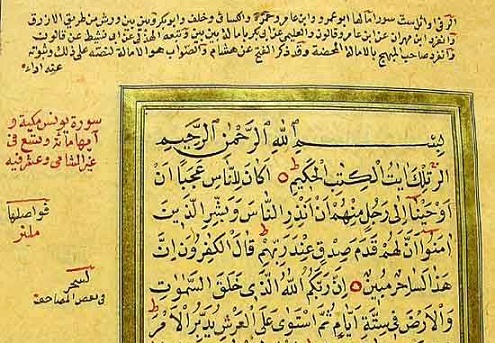 الر في اوائل ست سور امالها ابو عمرو وابن عامر وحمزة والكسائي وخلف وابوبكر وبين بين ورش من طريق الازرق
وانفرد ابن مهران عن ابن عامر وقالون والعليمي عن ابي بكر بامالة بين بين وتبعه الهذلي عن ابي نشيط عن قالون
وانفرد صاحب المبهج بالامالة المحضة وقد ذكر الفتح عن هشام والصواب هو الامالة لنصه على ذلك وثبوته
عنه اداء
سورة يونس مكية و
آيها مائة وتسع في
غير الشامي وعشر فيه
فواصلها
ملنر
لسحر
في بعض المصاحف
بِسْمِ اللهِ الرَّحْمٰنِ الرَّحِيمِ
الٓرٰ تِلْكَ اٰيٰتُ الْكِتٰبِ الْحَكِيمِ اَكَانَ لِلنَّاسِ عَجَبًا اَنْ
اَوْحَيْنَا اِلٰى رَجُلٍ مِنْهُمْ اَنْ اَنْذِرِ النَّاسَ وَبَشِّرِ الَّذِينَ
اٰمَنُوا اَنَّ لَهُمْ قَدَمَ صِدْقٍ عِنْدَ رَبِّهِمْ قَالَ الْكٰفِرُونَ اِنَّ
هٰذَا لَسٰحِرٌ مُبِينٌ اِنَّ رَبَّكُمُ اللهُ الَّذِي خَلَقَ السَّمٰوٰتِ
وَالْاَرْضَ فِي سِتَّةِ اَيَّامٍ ثُمَّ اسْتَوٰى عَلَى الْعَرْشِ يُدَبِّرُ الْاَمْرَ